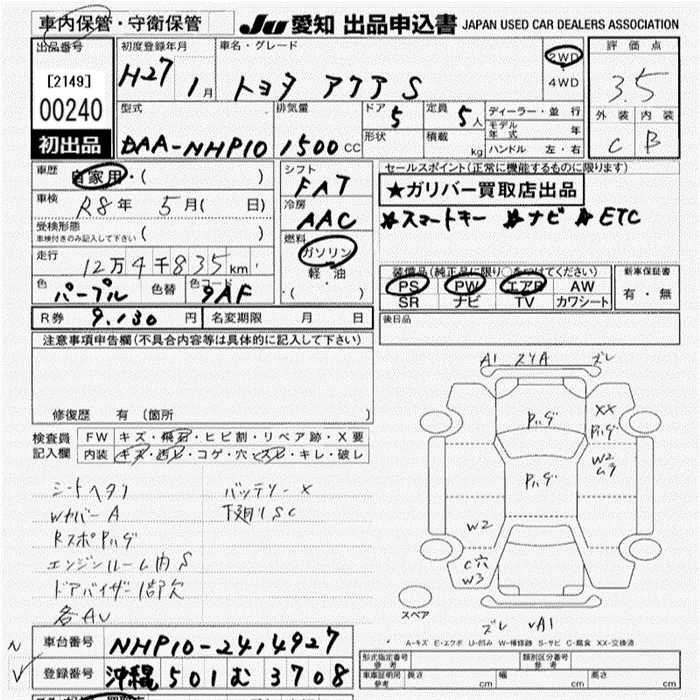 車内保管・守衛保管
JU 愛知 出品申込書 JAPAN USED CAR DEALERS ASSOCIATION
出品番号
[2149]
00240
初出品
初度登録年月
H27 1月
車名・グレード
トヨタ アクア S
2WD
4WD
評価点
3.5
外装 内装
C B
型式
DAA-NHP10
排気量
1500cc
ドア 5
形状
定員 5人
積載 kg
ディーラー・並行
モデル年式 年
ハンドル 左・右
車歴 自家用・( )
車検 R8年 5月( 日)
受検形態
車検付きのみ記入して下さい ( )
走行 12万4千835km
色 パープル 色替 色コード 9AF
シフト
FAT
冷房
AAC
燃料
ガソリン
軽・油
・( )
セールスポイント(正常に機能するものに限ります)
★ガリバー買取店出品
※スマートキー ※ナビ ※ETC
装備品(純正品に限り○をつけてください)
PS PW エアB AW
SR ナビ TV カワシート
新車保証書
有・無
後日品
R券 9,130円 名変期限 月 日
注意事項申告欄(不具合内容等は具体的に記入して下さい)
修復歴 有 (箇所 )
検査員記入欄
FW キズ・飛石・ヒビ割・リペア跡・X要
内装 キズ・汚レ・コゲ・穴・スレ・キレ・破レ
シートヘタリ
WカバーA
RスポPハゲ
エンジンルーム内S
ドアバイザー1部欠
各AU
バッテリーX
下廻りSC
A1 スリA ズレ
Pハゲ
XX
Pハゲ
W2
ムラ
Pハゲ
W2
C穴
W3
スペア
ズレ A1
A-キズ E-エクボ U-凹み W-補修跡 S-サビ C-腐食 XX-交換済
車台番号 NHP10-2414927
登録番号 沖縄 501 む 3708
型式指定番号
参考
類別区分番号
参考
車庫証明用
参考
長さ cm 幅 cm 高さ cm